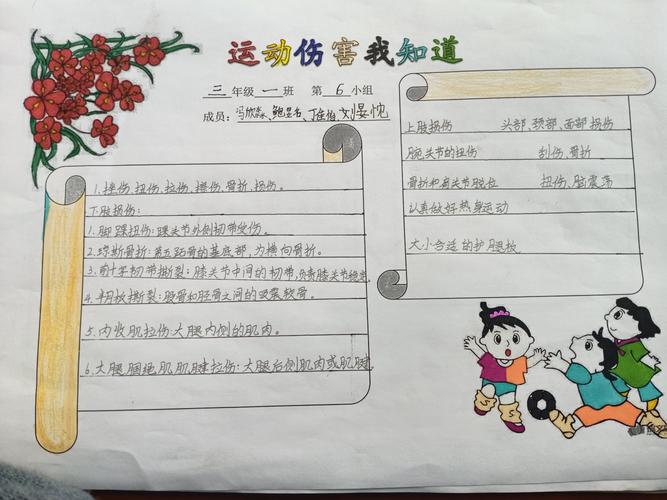 运动伤害我知道
三年级一班 第6小组
成员:冯欣淼、鲍昱名、
1.挫伤、扭伤、拉伤、擦伤、骨折、损伤。
下肢损伤:
1.脚踝扭伤:踝关节外侧韧带受伤。
2.琼斯骨折:第五跖骨的基底部,为横向骨折。
3.前十字韧带撕裂:膝关节中间的韧带,负责膝关节稳定。
4.半月板撕裂:股骨和胫骨之间的吸震软骨。
5.内收肌拉伤:大腿内侧的肌肉。
6.大腿腘绳肌肌腱拉伤:大腿后侧肌肉或肌腱。
上肢损伤 头部、颈部、面部损伤
腕关节的扭伤 刮伤、骨折
骨折和肩关节脱位 扭伤、脑震荡
认真做好热身运动
大小合适的护腿板